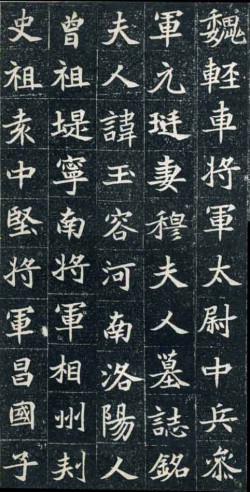 魏輕車將軍太尉中兵叅
軍元珽妻穆夫人墓誌銘
夫人諱玉容河南洛陽人
曾祖堤寧南將軍相州刺
史祖袁中堅將軍昌國子